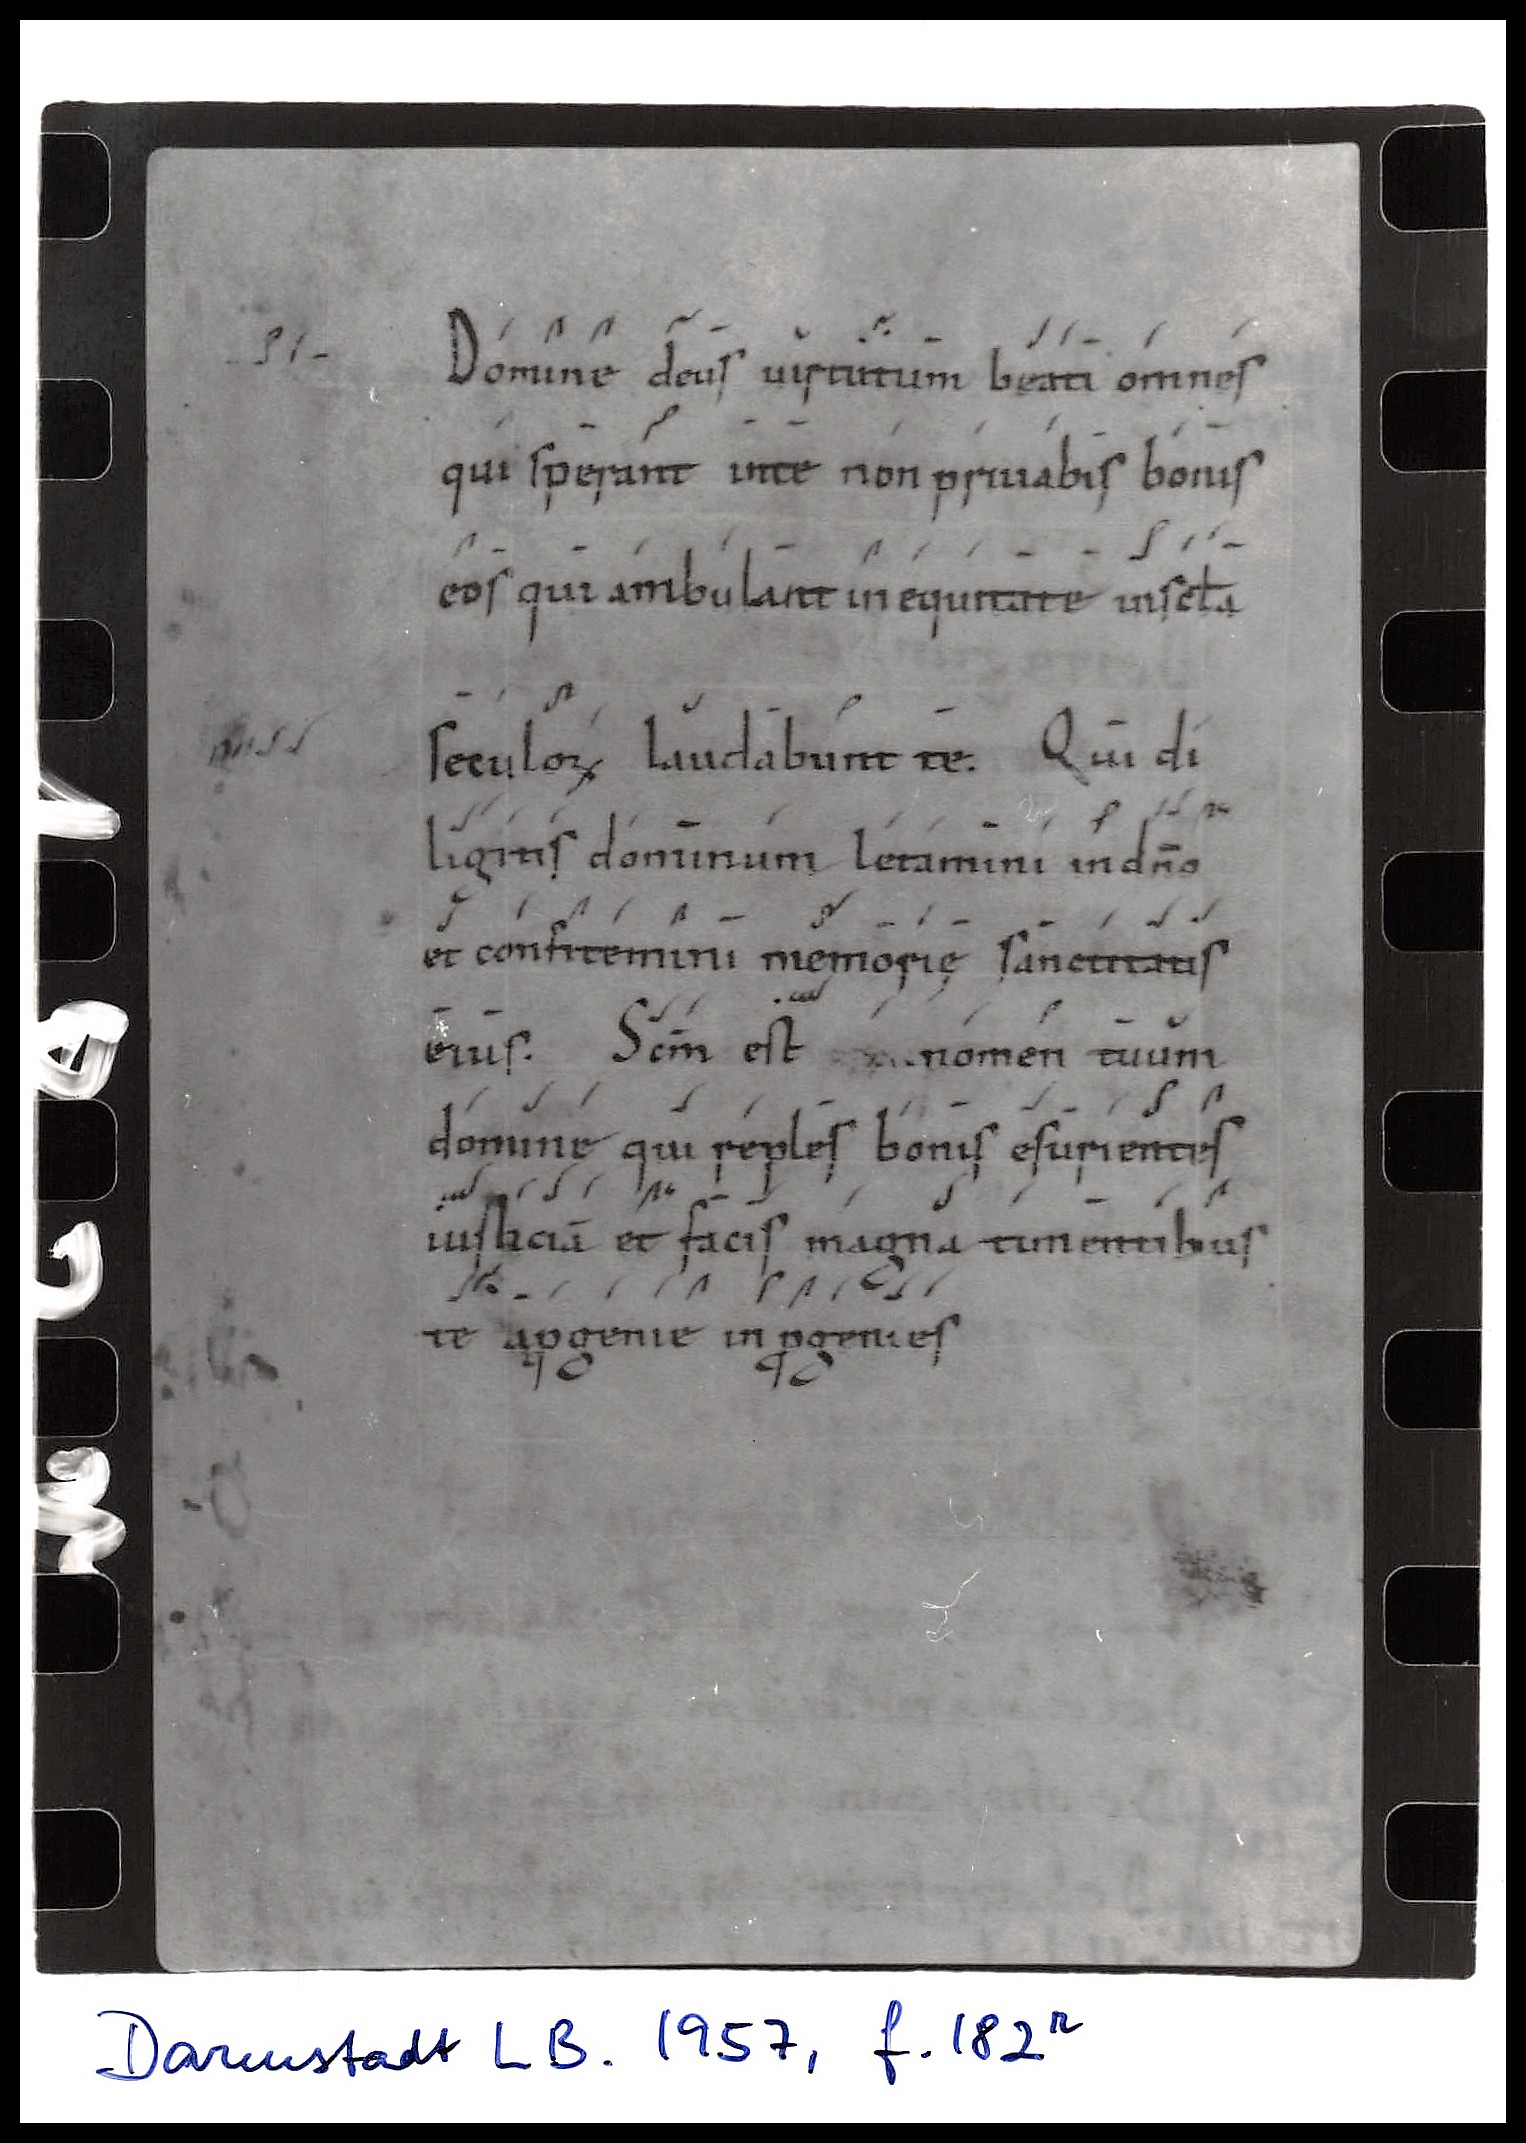 Domine deus uirtutum beati omnes
qui sperant inte non priuabis bonis
eos qui ambulant in equitate in scła
seculoꝝ laudabunt te. Qui di
ligitis dominum letamini in dño
et confitemini memorie sanctitatis
eius. Scm̄ est nomen tuum
domine qui reples bonis esurientes
iusticiā et facis magna timentibus
te a ꝓgenie in ꝓgenies
Darmstadt LB. 1957, f. 182r